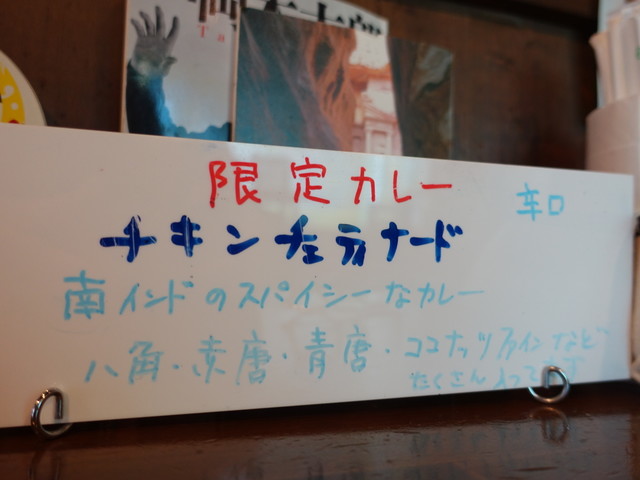 限定カレー
辛口
チキンチェテナード
南インドのスパイシーなカレー
八角・赤唐・青唐・ココナッツファインなど
たくさん入ってます